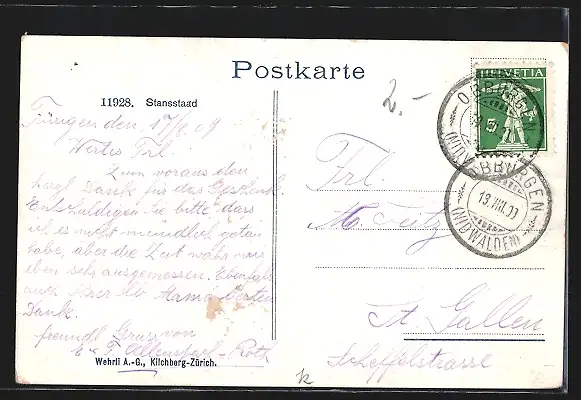 Postkarte
11928. Stansstaad
2.-
HELVETIA
5
OBBÜRGEN
(NIDWALDEN)
OBBÜRGEN
13.VIII.09
(NIDWALDEN)
den 17/8 09
Wertes Frl.
Zum voraus den
herzl. Dank für das
Entschuldigen Sie bitte, dass
ich es nicht mündlich getan
habe, aber die Zeit
eben sehr ausgemessen.
auch Ihrer lb Mama besten
Dank.
freundl Gruss von
Roth
Frl.
M.
St. Gallen
Scheffelstrasse
Wehrli A.-G., Kilchberg-Zürich.
k